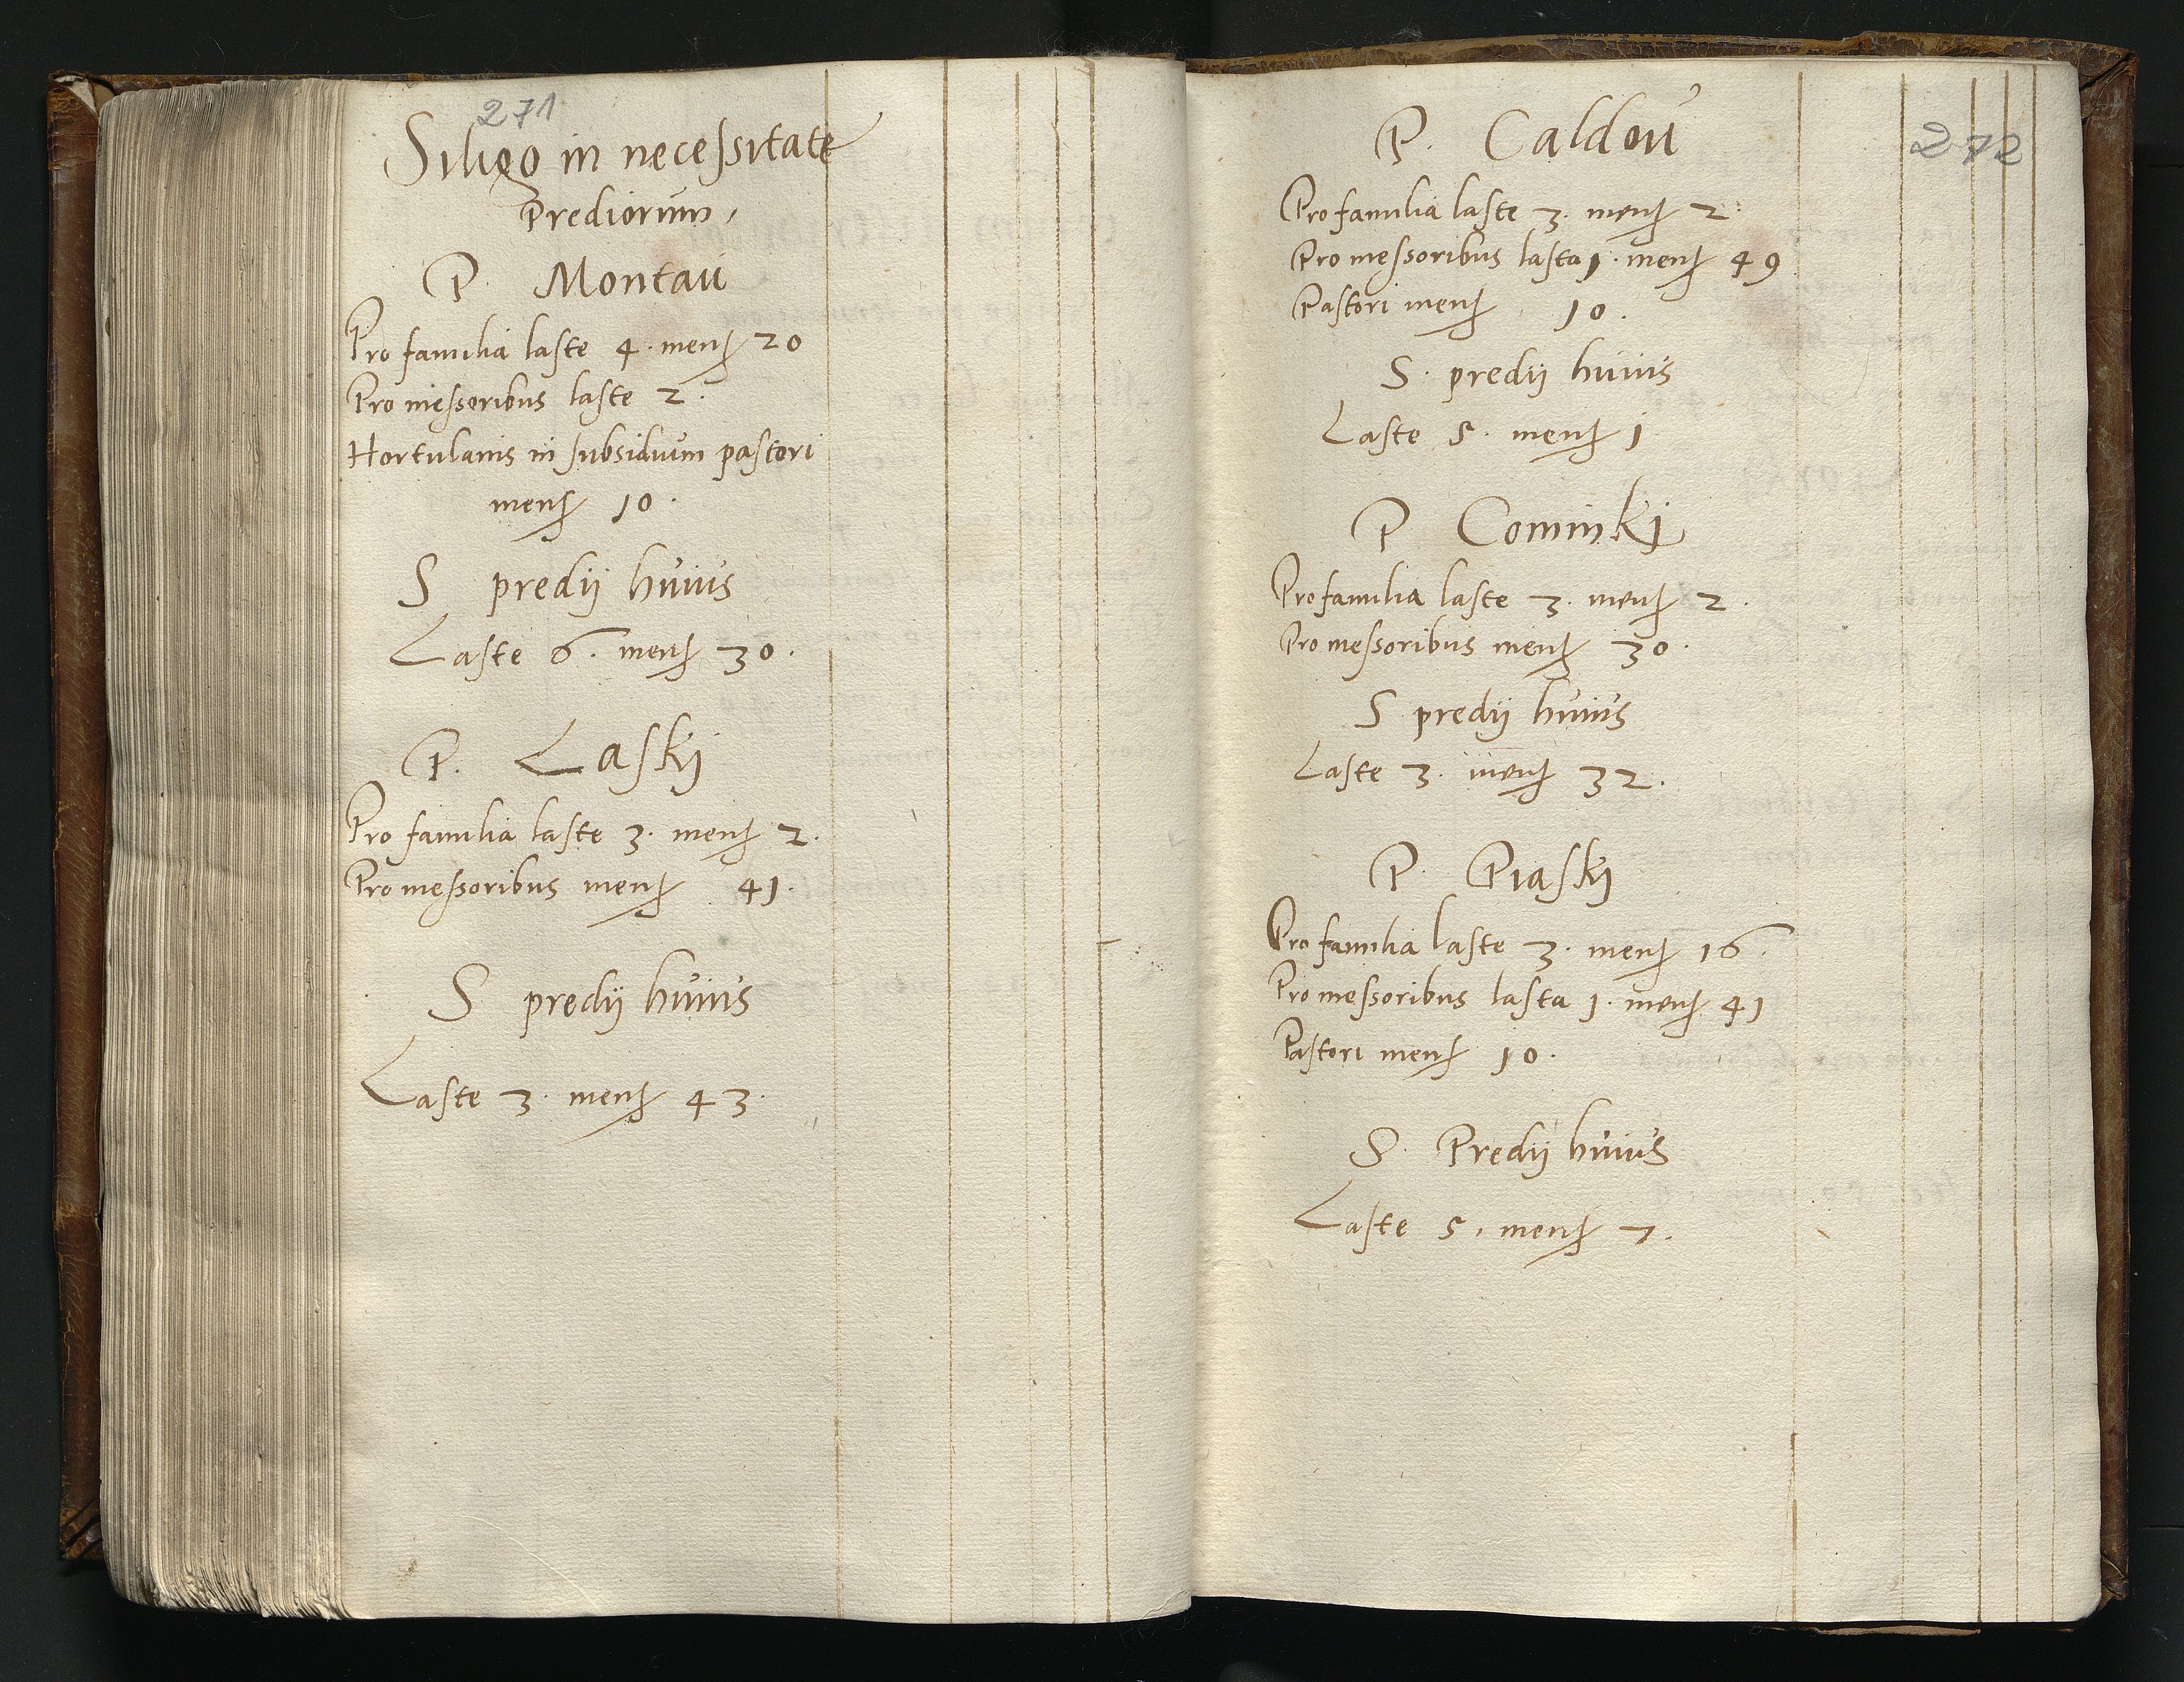 271
Siligo in necessitate
Prediorum,
P. Montau
Pro familia laste 4. mens 20
Pro messoribus laste 2.
Hortulanis in subsidium pastori
mens 10.
S predij huius
Laste 6. mens 30.
P. Laskj
Pro familia laste 3. mens 2.
Pro messoribus mens 41.
S predij huius
Laste 3. mens 43.
272
P. Caldou
Pro familia laste 3. mens 2.
Pro messoribus lasta 1. mens 49
Pastori mens 10.
S. predij huius
Laste 5. mens 1
P Cominkj
Pro familia laste 3. mens 2.
Pro messoribus mens 30.
S predij huius
Laste 3. mens 32.
P. Piaskj
Pro familia laste 3. mens 16.
Pro messoribus lasta 1. mens 41
Pastori mens 10.
S. Predij huius
Laste 5, mens 7.